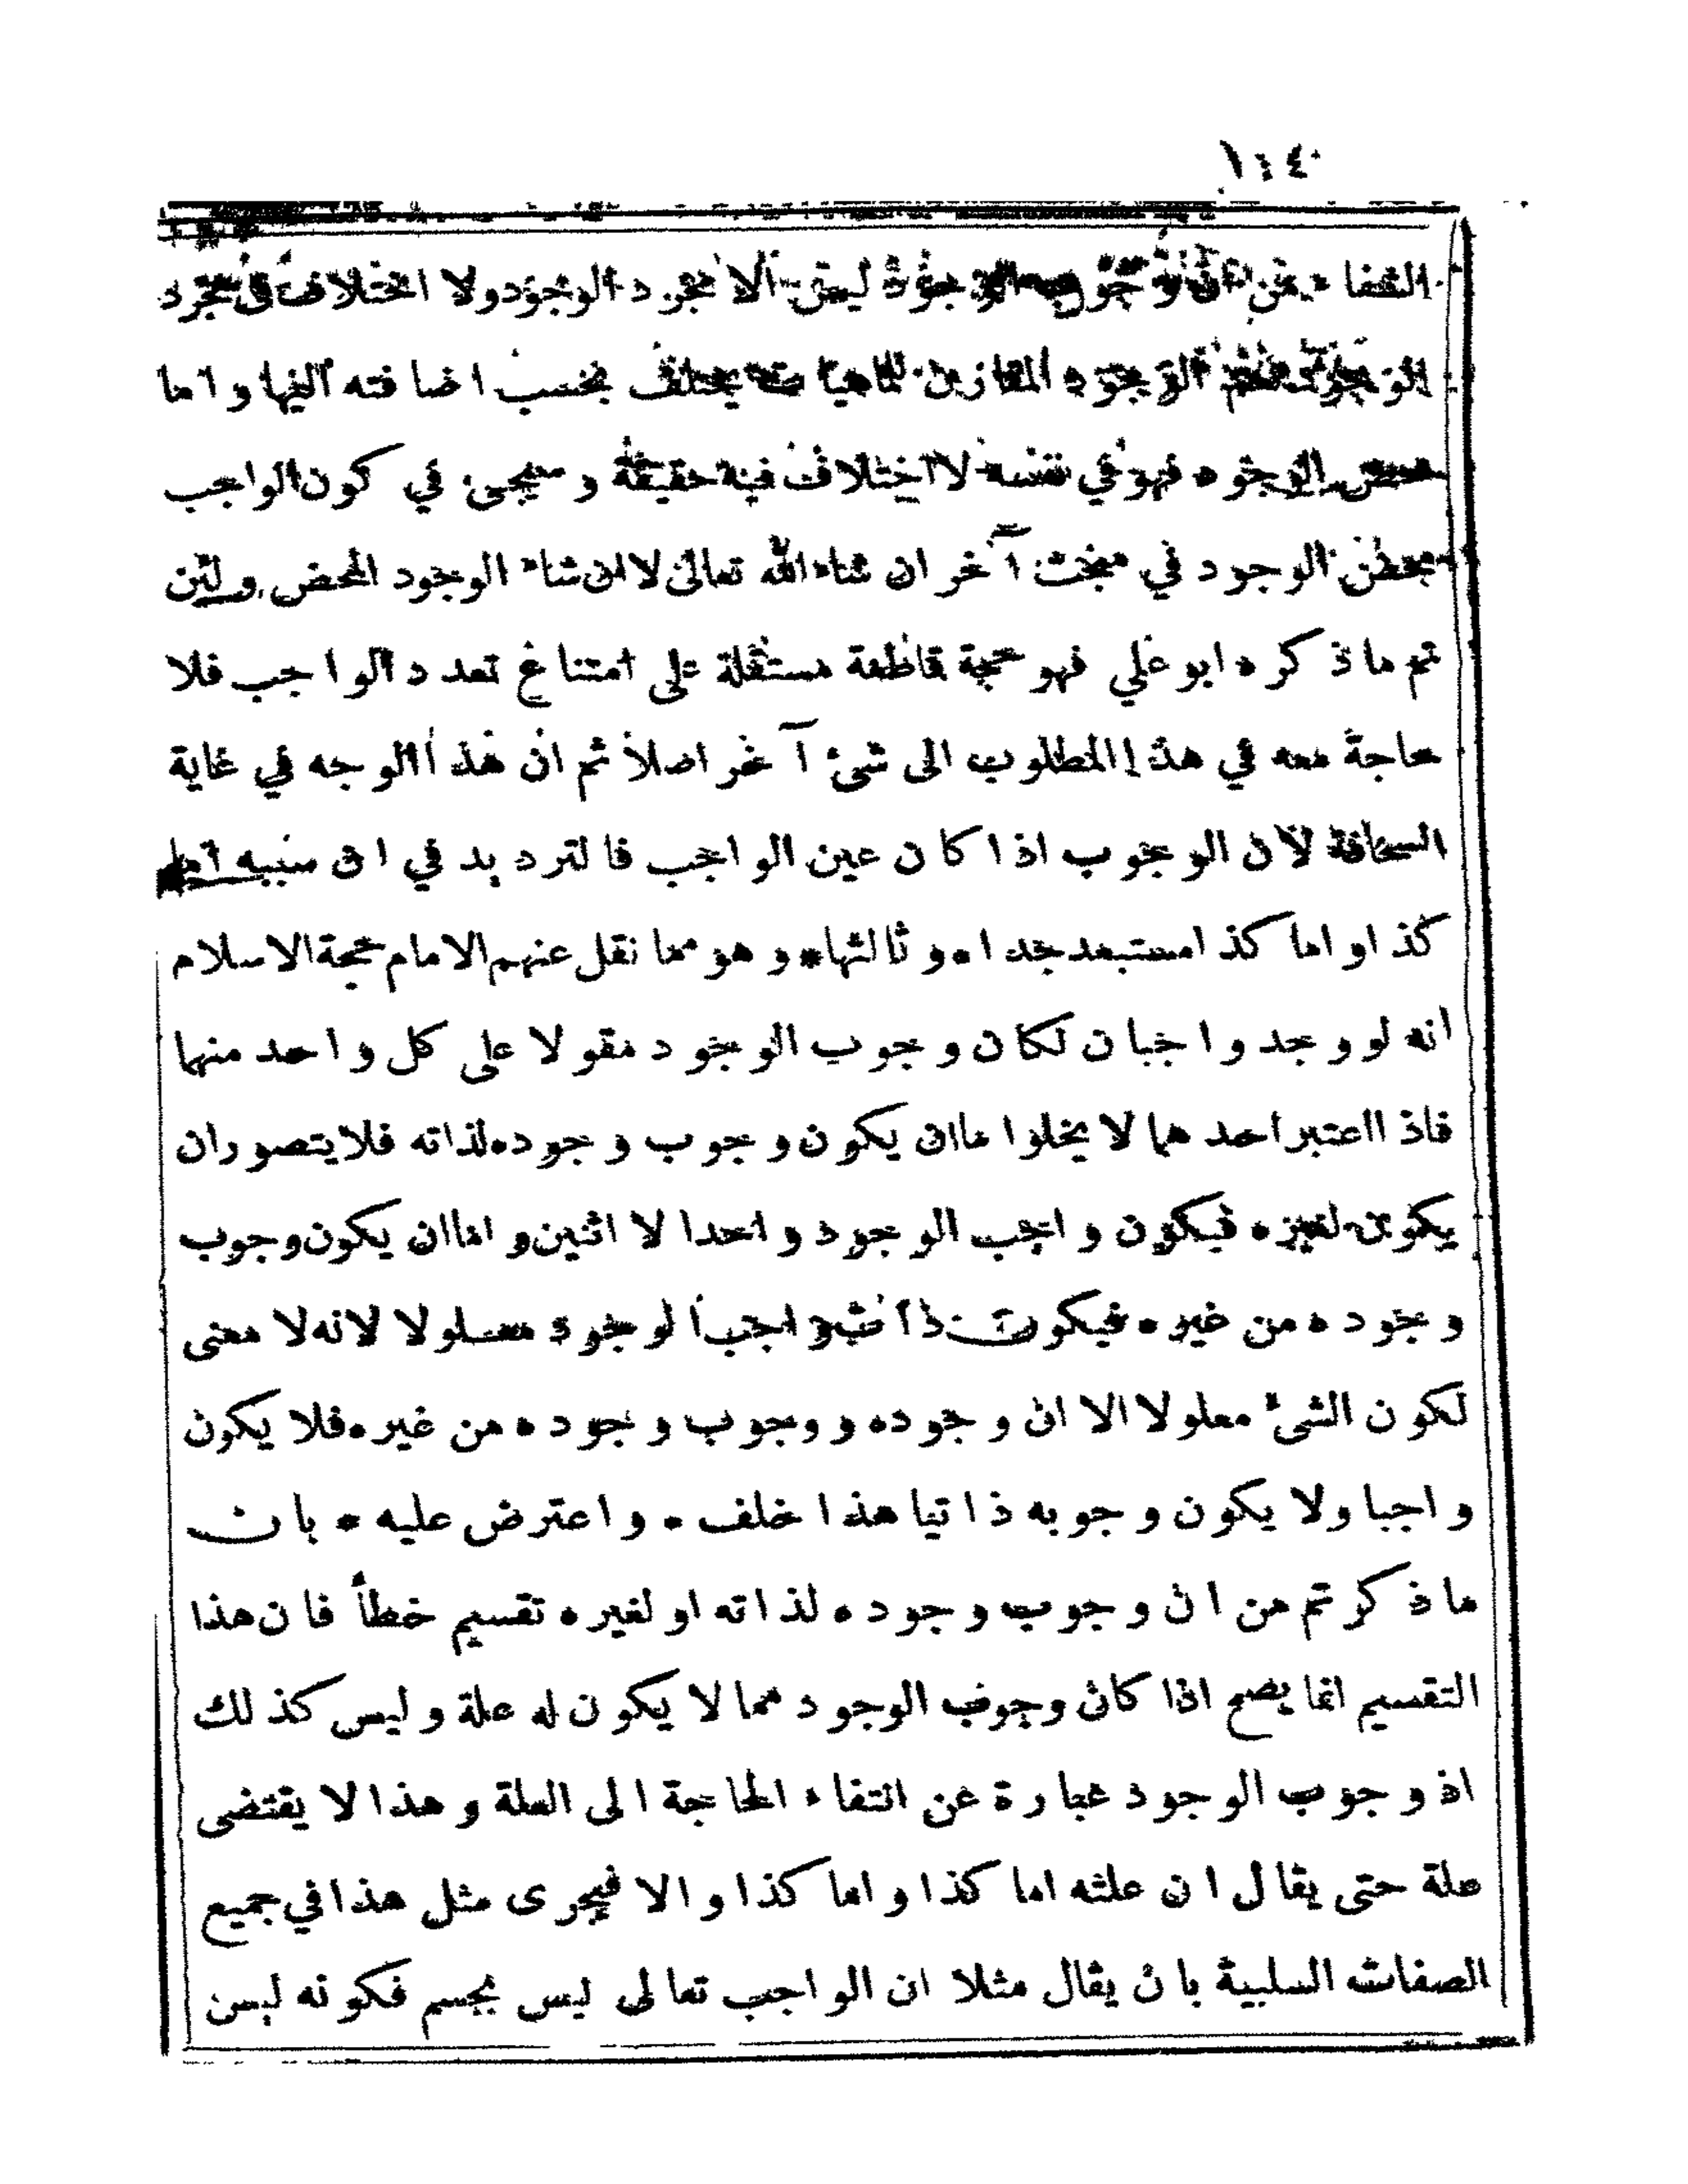 ١٠٤
الشفاء من ان وجوب الوجود ليس الا مجرد الوجود ولا اختلاف في مجرد
الوجود نعم الوجود المقارن للماهيات يختلف بحسب اضافته اليها واما
محض الوجود فهو في نفسه لا اختلاف فيه حقيقة وسيجئ في كون الواجب
محض الوجود في مبحث آخر ان شاء الله تعالى لا ان شاء الوجود المحض ولئن
تم ما ذكره ابو علي فهو حجة قاطعة مستقلة على امتناع تعدد الواجب فلا
حاجة معه في هذا المطلوب الى شئ آخر اصلا ثم ان هذا الوجه في غاية
السخافة لان الوجوب اذا كان عين الواجب فالترديد في ان سببه اما
كذا واما كذا مستبعد جدا * وثالثها * وهو مما نقل عنهم الامام حجة الاسلام
انه لو وجد واجبان لكان وجوب الوجود مقولا على كل واحد منهما
فاذا اعتبر احدهما لا يخلوا ما ان يكون وجوب وجوده لذاته فلا يتصور ان
يكون لغيره فيكون واجب الوجود واحدا لا اثنين واما ان يكون وجوب
وجوده من غيره فيكون ذات واجب الوجود معلولا لانه لا معنى
لكون الشئ معلولا الا ان وجوده ووجوب وجوده من غيره فلا يكون
واجبا ولا يكون وجوبه ذاتيا هذا خلف * واعترض عليه * بان
ما ذكرتم من ان وجوب وجوده لذاته او لغيره تقسيم خطأ فان هذا
التقسيم انما يصح اذا كان وجوب الوجود مما لا يكون له علة وليس كذلك
اذ وجوب الوجود عبارة عن انتفاء الحاجة الى العلة وهذا لا يقتضى
علة حتى يقال ان علته اما كذا واما كذا والا فيجرى مثل هذا في جميع
الصفات السلبية بان يقال مثلا ان الواجب تعالى ليس بجسم فكونه ليس